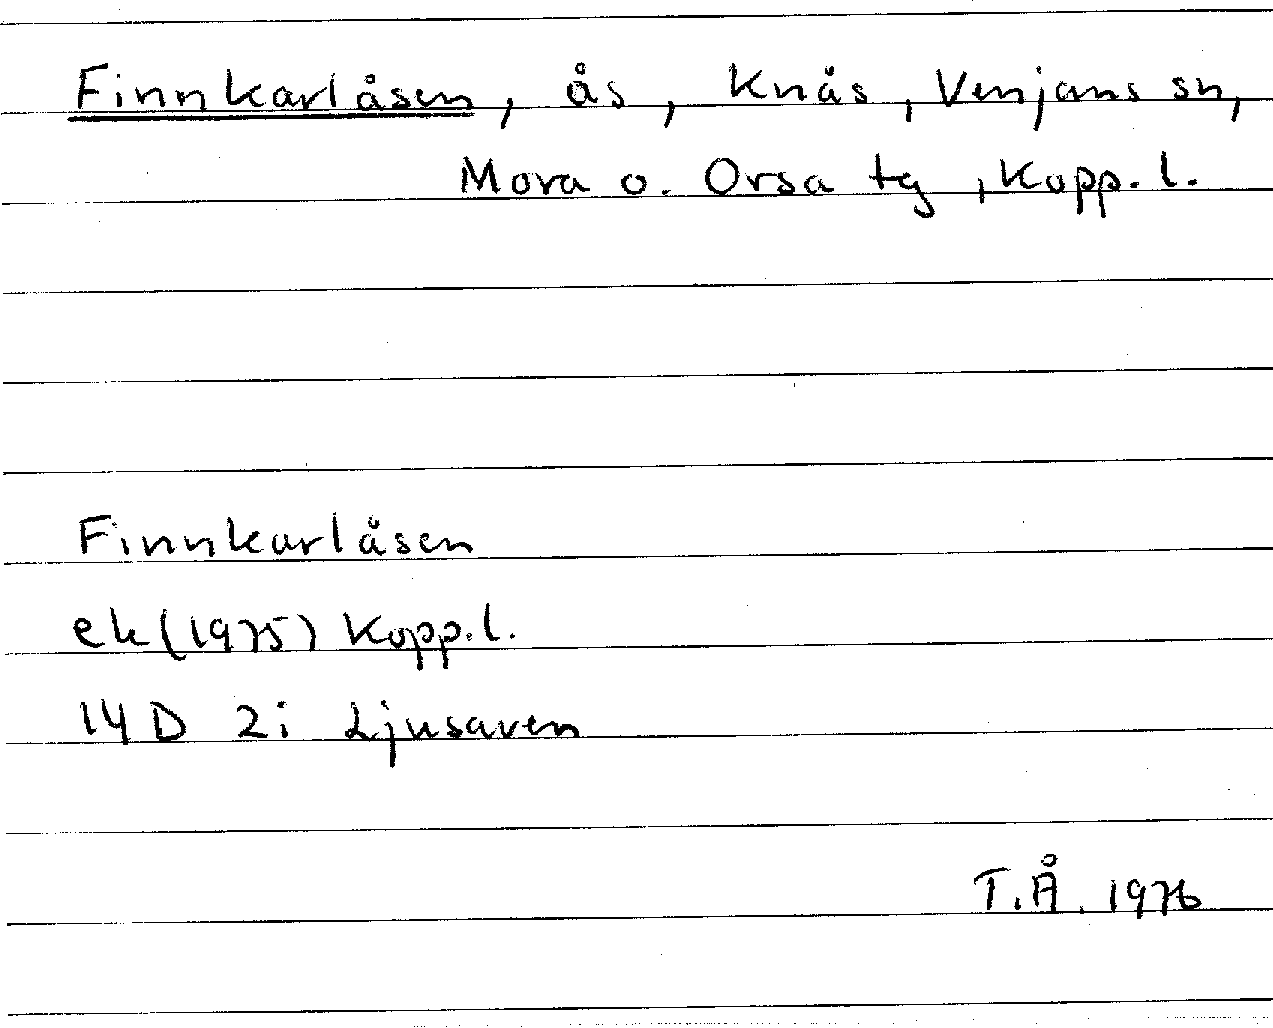 Finnkarlåsen, ås, Knås, Venjans sn,
Mora o. Orsa tg, Kopp. l.
Finnkarlåsen
ek (1975) Kopp. l.
14 D 2i Ljusaven
T.Å. 1976